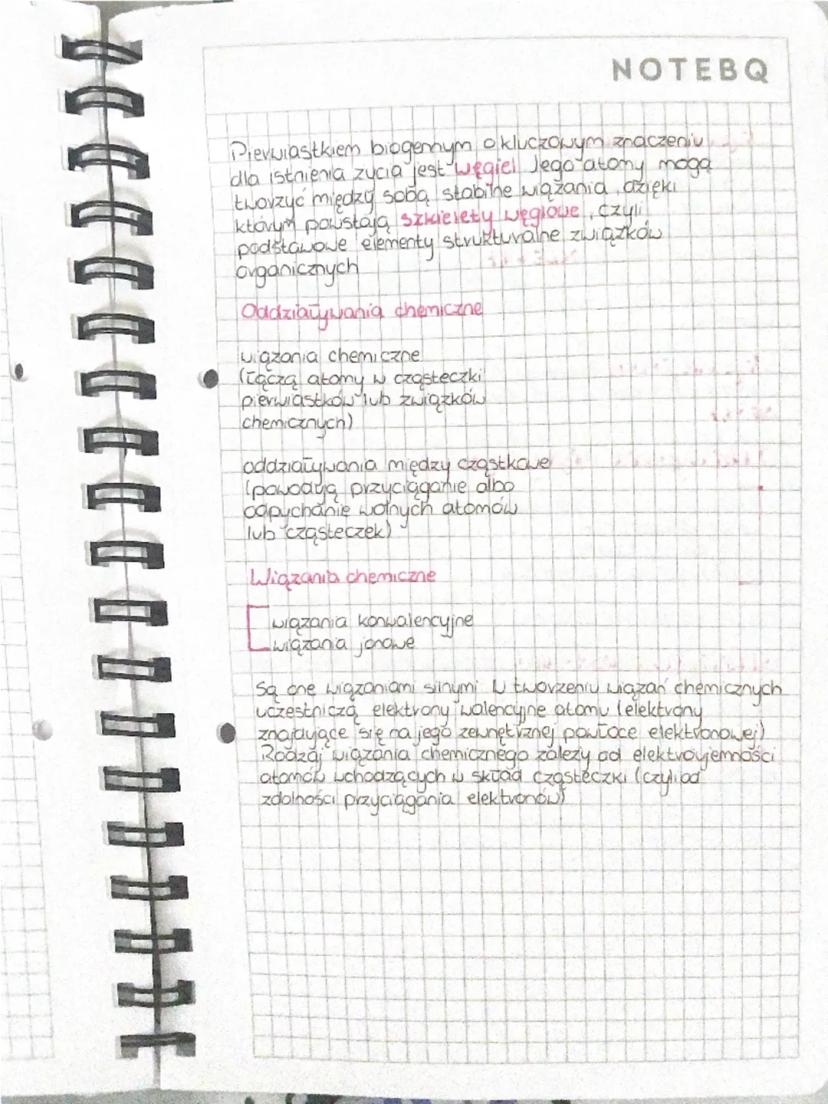 NOTEBQ
Pierwiastkiem biogennym o kluczowym znaczeniu
dla istnienia życia jest węgiel Jego atomy mogą
tworzyć między sobą stabilne wiązania, dzięki
którym powstają szkielety węglowe, czyli
podstawowe elementy strukturalne związków
organicznych
Oddziaływania chemiczne
wiązania chemiczne
(łączą atomy w cząsteczki
pierwiastków lub związków
chemicznych)
oddziaływania między cząstkowe
(powodują przyciąganie albo
odpychanie wolnych atomów
lub cząsteczek)
Wiązania chemiczne
wiązania kowalencyjne
wiązania jonowe
Są one wiązaniami silnymi W tworzeniu wiązań chemicznych
uczestniczą elektrony walencyjne atomu (elektrony
znajdujące się na jego zewnętrznej powłoce elektronowej)
Rodzaj wiązania chemicznego zależy od elektroujemności
atomów wchodzących w skład cząsteczki (czyli od
zdolności przyciągania elektronów)